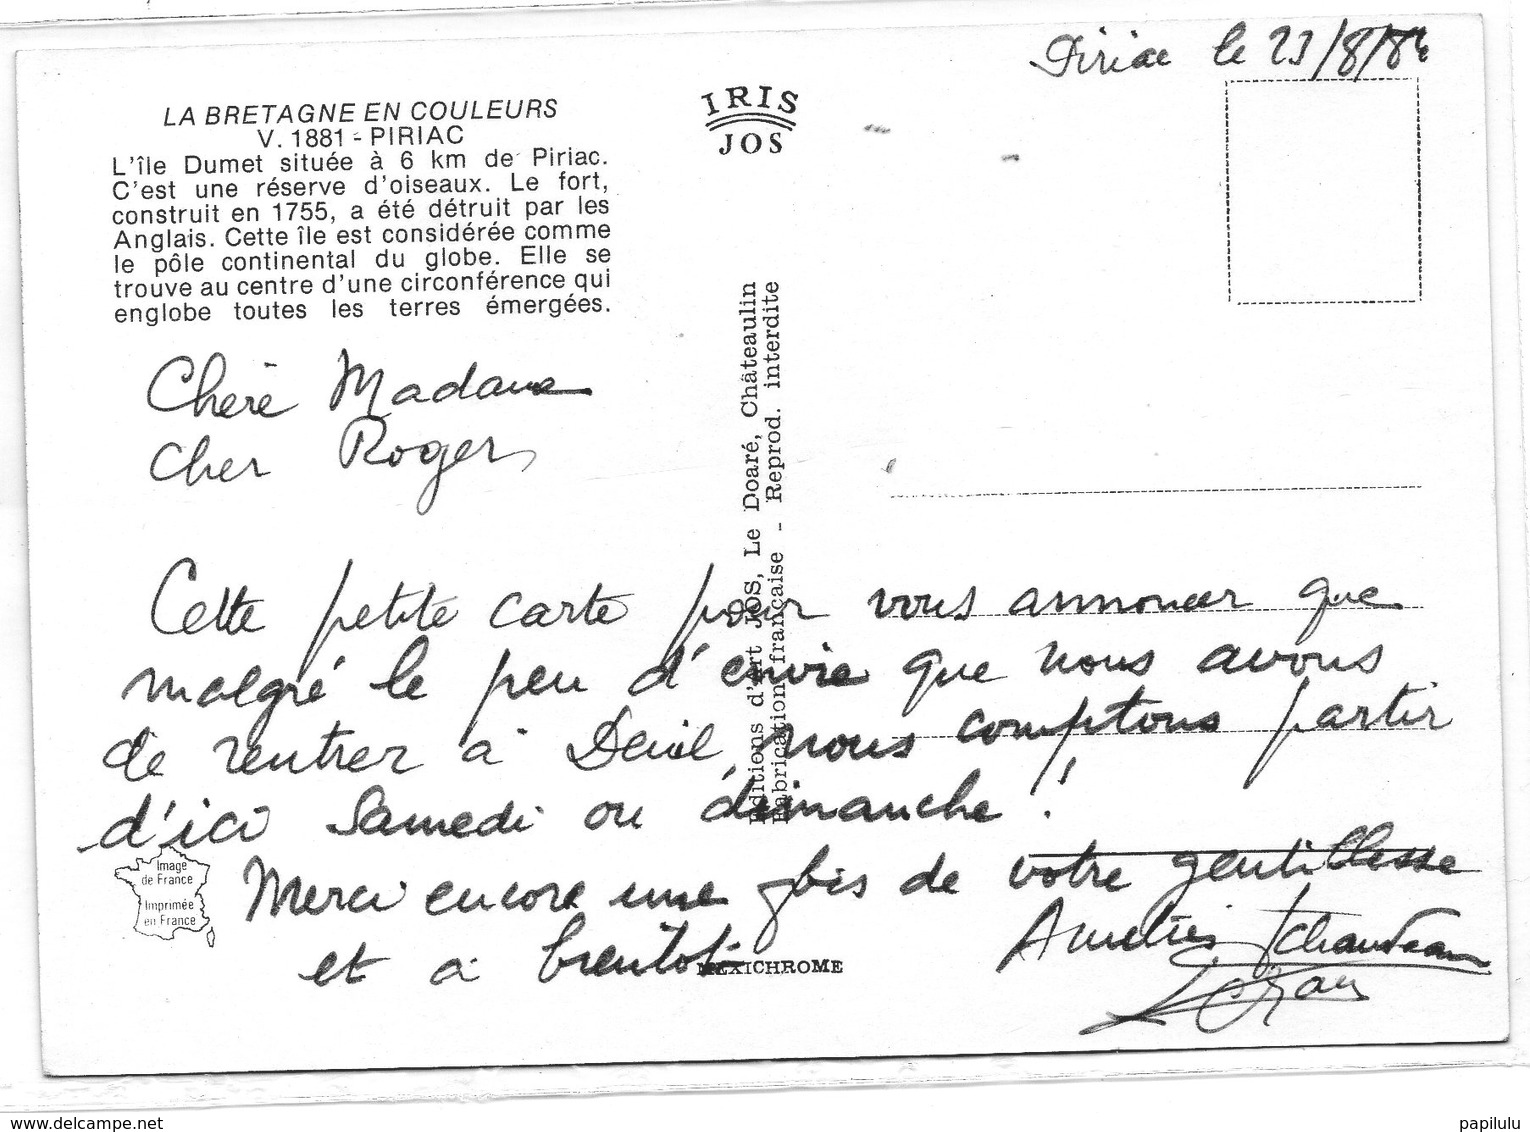 Piriac le 23/8/8
LA BRETAGNE EN COULEURS
V. 1881 - PIRIAC
L'île Dumet située à 6 km de Piriac.
C'est une réserve d'oiseaux. Le fort,
construit en 1755, a été détruit par les
Anglais. Cette île est considérée comme
le pôle continental du globe. Elle se
trouve au centre d'une circonférence qui
englobe toutes les terres émergées.
IRIS
JOS
Editions d'art JOS, Le Doaré, Châteaulin
Fabrication française - Reprod. interdite
Chère Madame
cher Roger,
Cette petite carte pour vous annoncer que
malgré le peu d'envie que nous avons
de rentrer à Deuil, nous comptons partir
d'ici Samedi ou dimanche !
Merci encore une fois de votre gentillesse
et à bientôt
Amitiés
Image
de France
Imprimée
en France
MEXICHROME
www.delcampe.net
papilulu